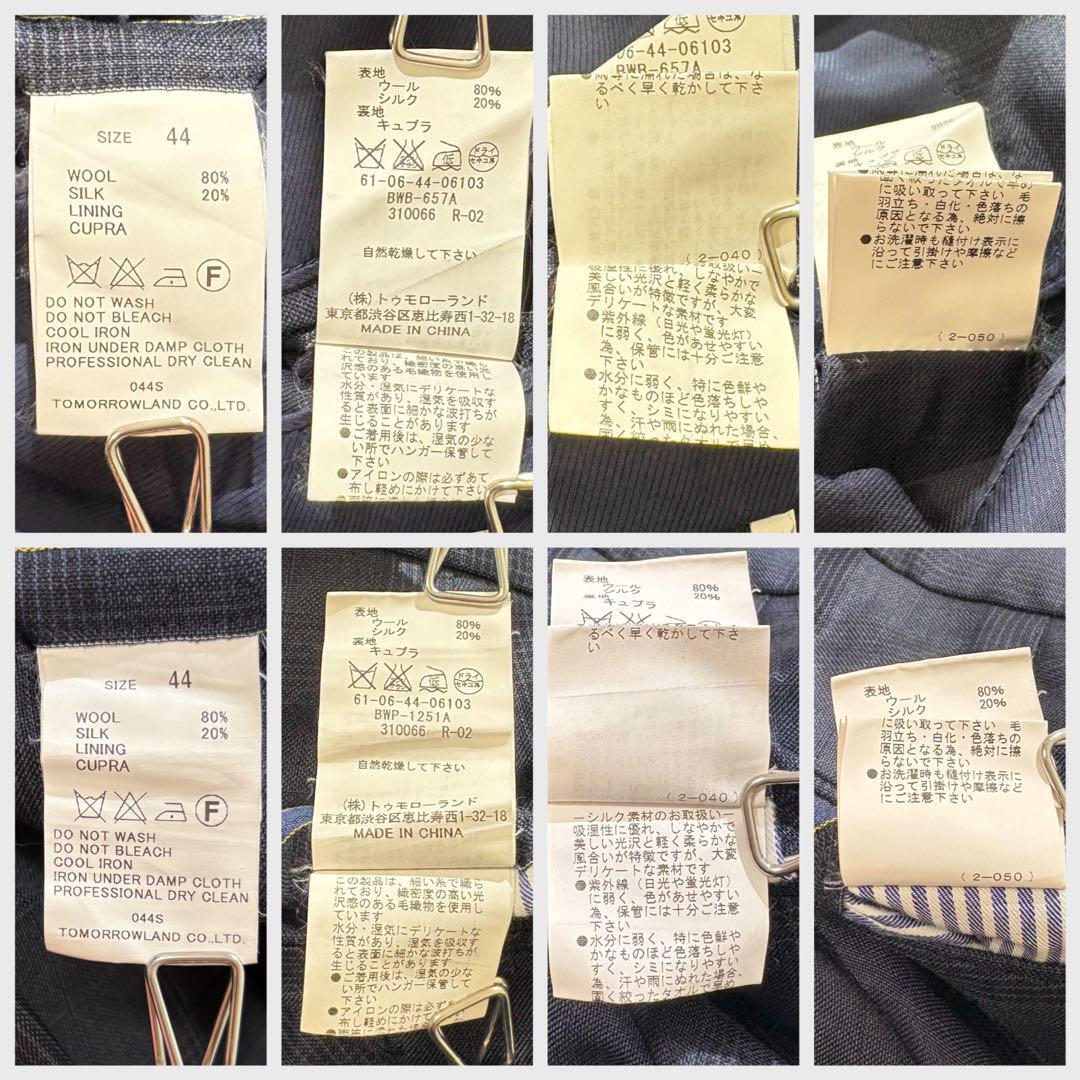 SIZE 44
WOOL 80%
SILK 20%
LINING
CUPRA
F
DO NOT WASH
DO NOT BLEACH
COOL IRON
IRON UNDER DAMP CLOTH
PROFESSIONAL DRY CLEAN
044S
TOMORROWLAND CO.,LTD.
表地
ウール 80%
シルク 20%
裏地
キュプラ
低 ドライ セキユ系
61-06-44-06103
BWB-657A
310066 R-02
自然乾燥して下さい
(株)トゥモローランド
東京都渋谷区恵比寿西1-32-18
MADE IN CHINA
この製品は、細い糸で織ら
れており、緻密度の高い光
沢感のある毛織物を使用し
ています
水分・湿気にデリケートな
性質があり、湿気を吸収す
ると表面に細かな波打ちが
生じることがあります
●ご着用後は、湿気の少な
い所でハンガー保管して
下さい
●アイロンの際は必ずあて
布し軽めにかけて下さい
低 セキユ系
06-44-06103
BWB-657A
●雨等に濡れた場合は、な
るべく早く乾かして下さ
い
(2-040)
吸湿性に優れ、しなやかで
美しい光沢と軽く柔らかな
風合いが特徴ですが、大変
デリケートな素材です
●紫外線(日光や蛍光灯)
に弱く、色があせやすい
為、保管には十分ご注意
下さい
●水分に弱く、特に色鮮や
かなものほど色落ちしや
すく、シミになりやすい
為、汗や雨にぬれた場合、
固く絞ったタオルで早め
表地
裏地
低 ドライ セキユ系
固く絞ったタオルで早め
に吸い取って下さい 毛
羽立ち・白化・色落ちの
原因となる為、絶対に擦
らないで下さい
●お洗濯時も縫付け表示に
沿って引掛けや摩擦など
にご注意下さい
(2-050)
SIZE 44
WOOL 80%
SILK 20%
LINING
CUPRA
F
DO NOT WASH
DO NOT BLEACH
COOL IRON
IRON UNDER DAMP CLOTH
PROFESSIONAL DRY CLEAN
044S
TOMORROWLAND CO.,LTD.
表地
ウール 80%
シルク 20%
裏地
キュプラ
低 ドライ セキユ系
61-06-44-06103
BWP-1251A
310066 R-02
自然乾燥して下さい
(株)トゥモローランド
東京都渋谷区恵比寿西1-32-18
MADE IN CHINA
この製品は、細い糸で織ら
れており、緻密度の高い光
沢感のある毛織物を使用し
ています
水分・湿気にデリケートな
性質があり、湿気を吸収す
ると表面に細かな波打ちが
生じることがあります
●ご着用後は、湿気の少な
い所でハンガー保管して
下さい
●アイロンの際は必ずあ
布し軽めにかけて下さ
表地
ウール 80%
シルク 20%
裏地
キュプラ
るべく早く乾かして下さ
い
(2-040)
ーシルク素材のお取扱いー
吸湿性に優れ、しなやかで
美しい光沢と軽く柔らかな
風合いが特徴ですが、大変
デリケートな素材です
●紫外線(日光や蛍光灯)
に弱く、色があせやすい
為、保管には十分ご注意
下さい
●水分に弱く、特に色鮮や
かなものほど色落ちしや
すく、シミになりやすい
為、汗や雨にぬれた場合、
固く絞ったタオルで早め
表地
ウール 80%
シルク 20%
に吸い取って下さい 毛
羽立ち・白化・色落ちの
原因となる為、絶対に擦
らないで下さい
●お洗濯時も縫付け表示に
沿って引掛けや摩擦など
にご注意下さい
(2-050)